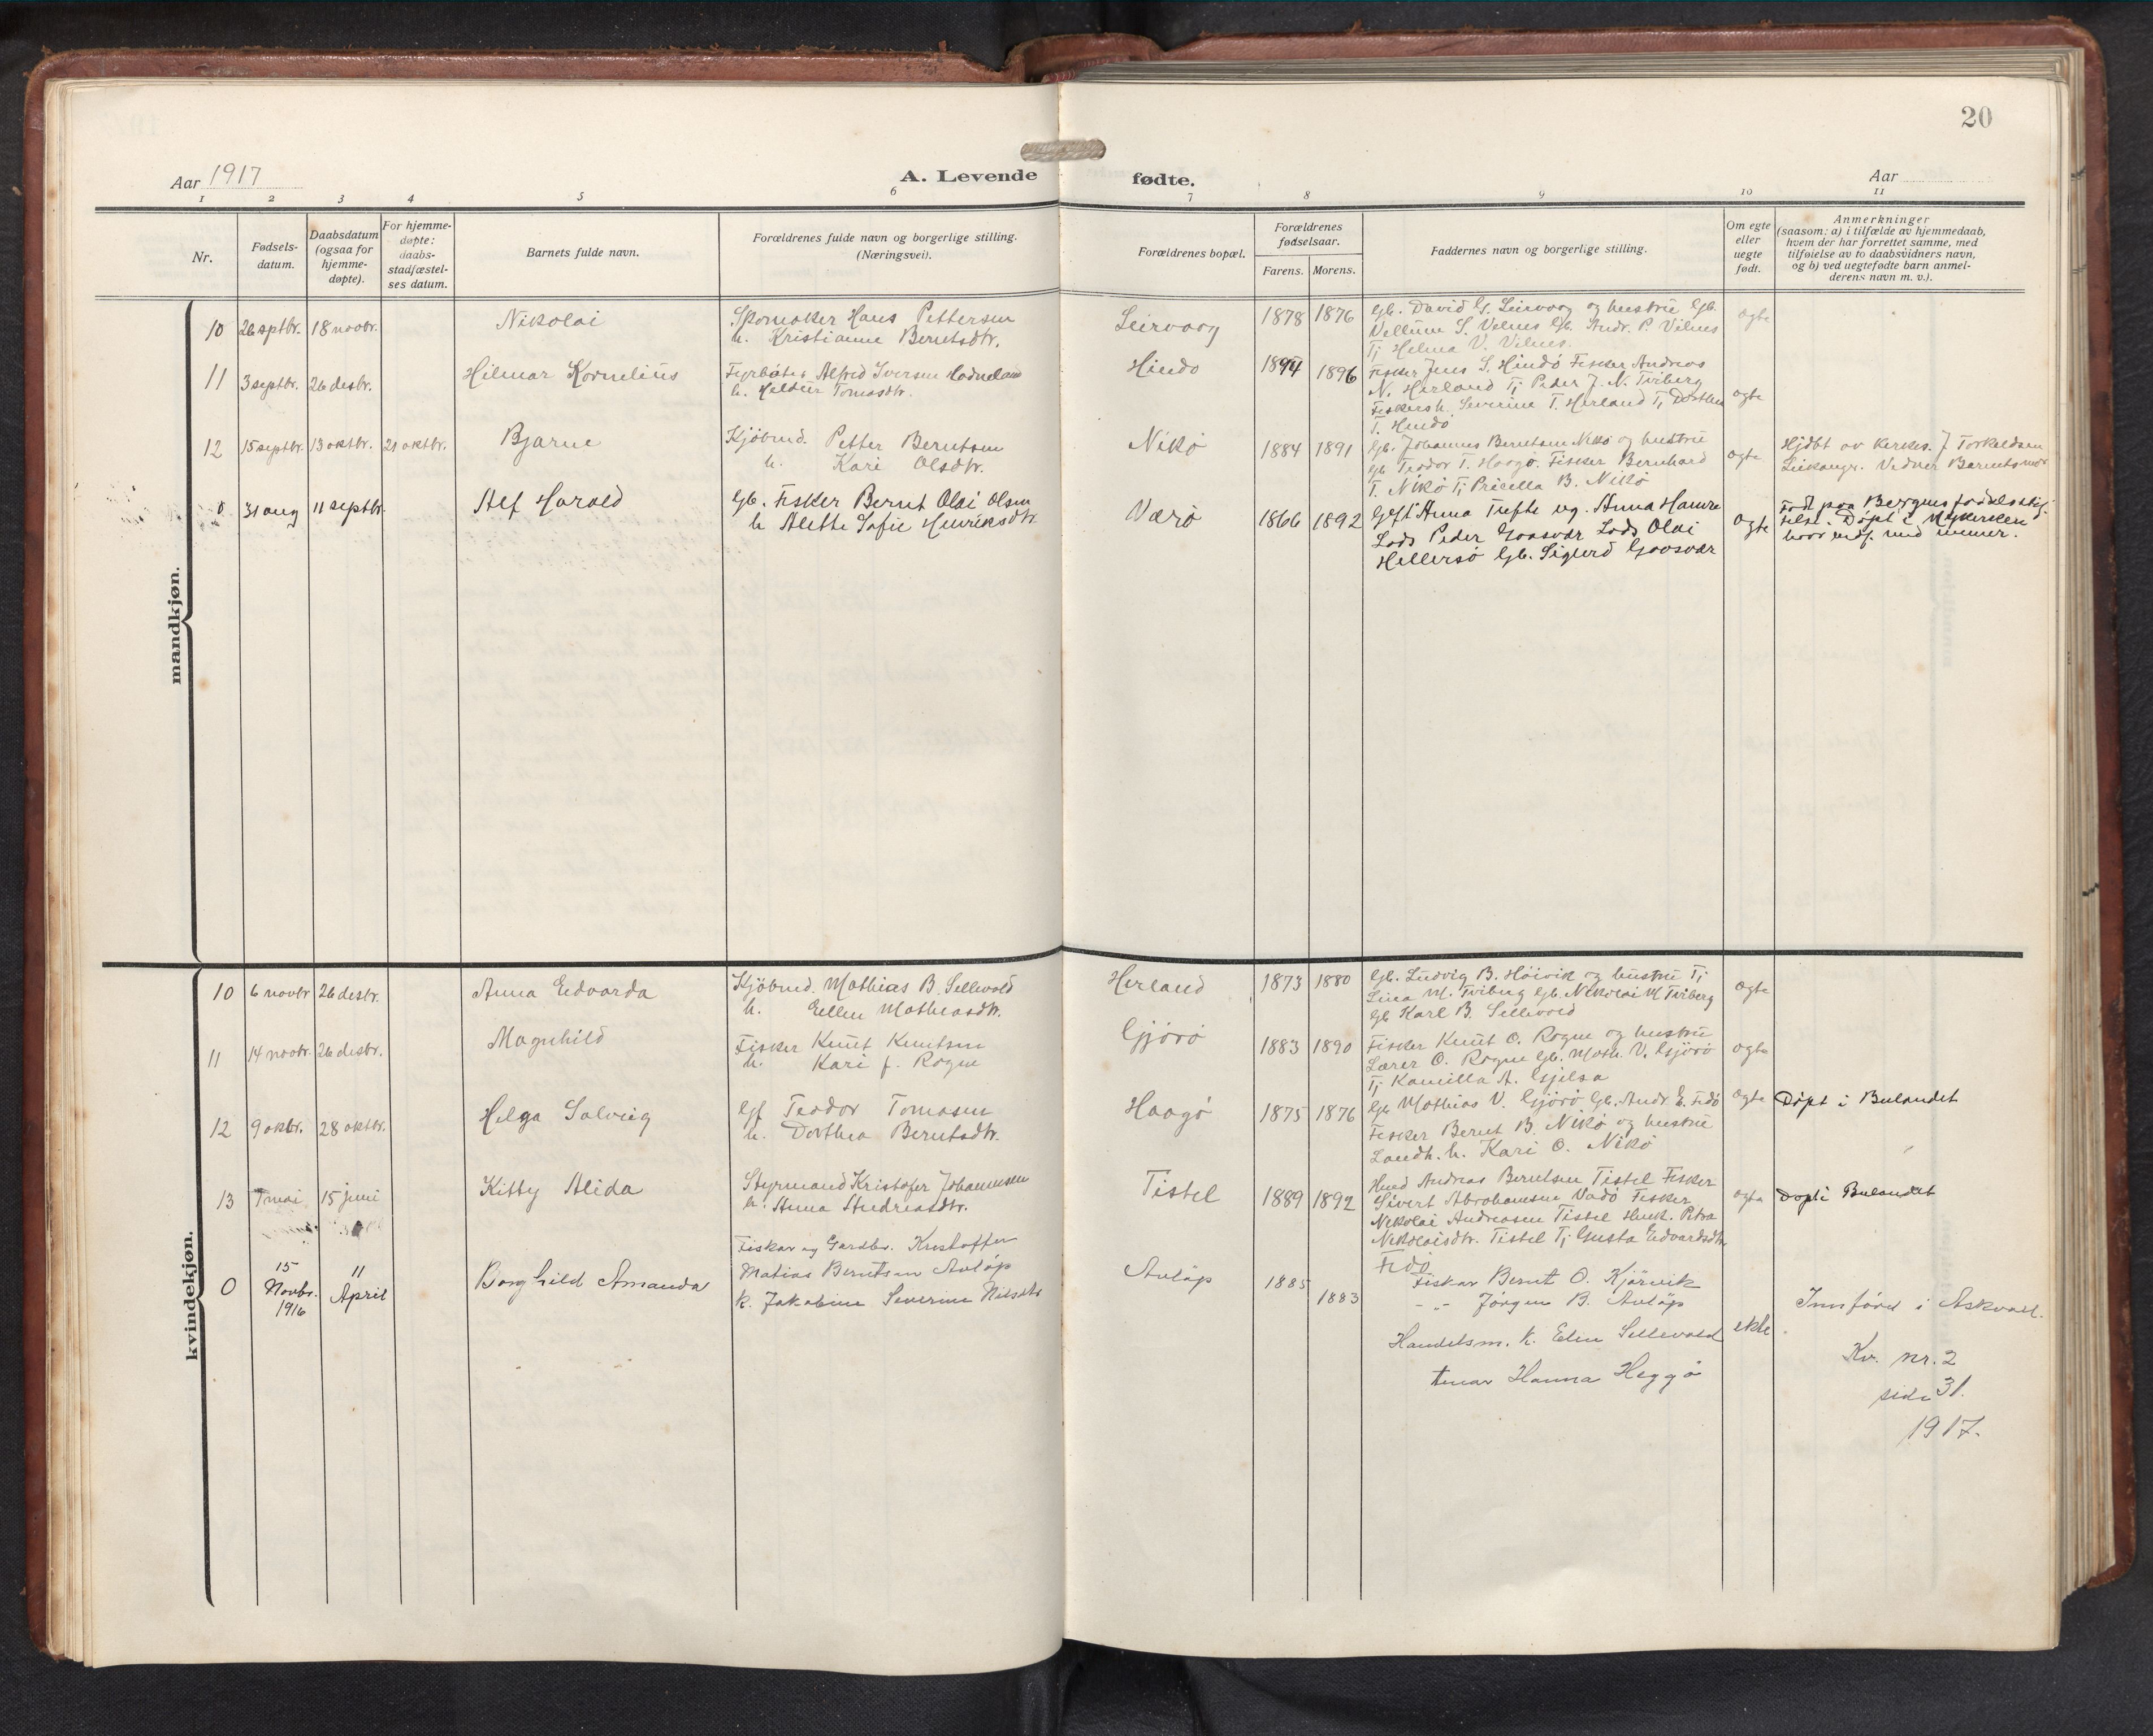 20
Aar 1917
A. Levende fødte.
Aar
1 2 3 4 5 6 7 8 9 10 11
Nr.
Fødsels-
datum.
Daabsdatum
(ogsaa for
hjemme-
døpte).
For hjemme-
døpte:
daabs-
stadfæstel-
ses datum.
Barnets fulde navn.
Forældrenes fulde navn og borgerlige stilling.
(Næringsvei).
Forældrenes bopæl.
Forældrenes
fødselsaar.
Farens. Morens.
Faddernes navn og borgerlige stilling.
Om egte
eller
uegte
født.
Anmerkninger
(saasom: a) i tilfælde av hjemmedaab,
hvem der har forrettet samme, med
tilføielse av to daabsvidners navn,
og b) ved uegtefødte barn anmel-
derens navn m. v.).
mandkjøn.
10 26 septbr. 18 novbr.
Nikolai
Skomaker Hans Pettersen
h. Kristianne Berntsdtr.
Leirvaag
1878 1876
Gb. David G. Leirvaag og hustru Gb.
Vellum S. Velnes Gb. Andr. P. Vilnes
Tj Helma V. Vilnes.
egte
11 3 septbr. 26 desbr.
Hilmar Kornelius
Fyrbøter Alfred Iversen Hodneland
h. Heldur Tomasdtr.
Hindø
1894 1896
Fisker Jens S. Hindø Fisker Andreas
N. Herland Tj Peder J. N. Tviberg
Fiskersh. Severine T. Herland Tj Dorthea
T. Hindø
egte
12 15 septbr. 13 oktbr. 21 oktbr.
Bjarne
Kjøbmd. Petter Berntsen
h. Kari Olsdtr.
Nikø
1884 1891
Gb. Johannes Berntsen Nikø og hustru
gb Teodor T. Haagø. Fisker Bernhard
T. Nikø Tj Pricilla B. Nikø
egte
Hjdbt av kirkes. J Torkeldsen
Leikangr. Vidner Barnets mor
0 31 aug 11 septbr.
Alf Harald
Gb. Fisker Bernt Olai Olsen
h Alette Sofie Henriksdtr
Værø
1866 1892
Gift Anna Tufte ug. Anna Hamre
Lods Peder Gaasvær Lods Olai
Hellersø Gb. Sigurd Gaasvær
egte
Født paa Bergens fødselsstif-
telse. Døpt i Nykirken
hvor indf. med numer.
kvindekjøn.
10 6 novbr 26 desbr.
Anna Edvarda
Kjøbmd. Mathias B. Sellevold
h. Ellen Mathiasdtr.
Herland
1873 1880
Gb. Ludvig B. Høivik og hustru Tj
Lina M. Tviberg Gb. Nikolai M Tviberg
Gb Karl B. Sellevold
egte
11 14 novbr. 26 desbr.
Magnhild
Fisker Knut Knutsen
h. Kari f. Rogne
Gjørø
1883 1890
Fisker Knut O. Rogne og hustru
Lærer O. Rogne Gb. Math. V. Gjørø
Tj Kamilla A. Gjelsa
egte
12 9 oktbr. 28 oktbr.
Helga Solveig
Gb Teodor Tomasen
h. Dorthea Berntsdtr.
Haagø
1875 1876
Gb Mathias V. Gjørø Gb. Andr. E. Fedø
Fisker Bernt B. Nikø og hustru
Landh. h. Kari O. Nikø
egte
Døpt i Bulandet
13 7 mai 15 juni
Kitty Alida
Styrmand Kristofer Johannesen
h. Anna Andreasdtr.
Tistel
1889 1892
Hmd Andreas Berntsen Tistel Fisker
Sivert Abrahamsen Vadø Fisker
Nikolai Andreasen Tistel Husk. Petra
Nikolaisdtr. Tistel Tj Gusta Edvardsdtr
Fedø
egte
Døpt i Bulandet
0 15 Novbr. 1916 11 April
Borghild Amanda
Fiskar og Gardbr. Kristoffer
Matias Berntsen Avløp
k. Jakobine Severine Nilsdtr
Avløp
1885 1883
Fiskar Bernt O. Kjørvik
-"- Jørgen B. Avløp
Handelsm. k. Elen Sellevold
tenar Hanna Heggø
ekte
Innførd i Askvoll.
Kv. nr. 2
side 31.
1917.